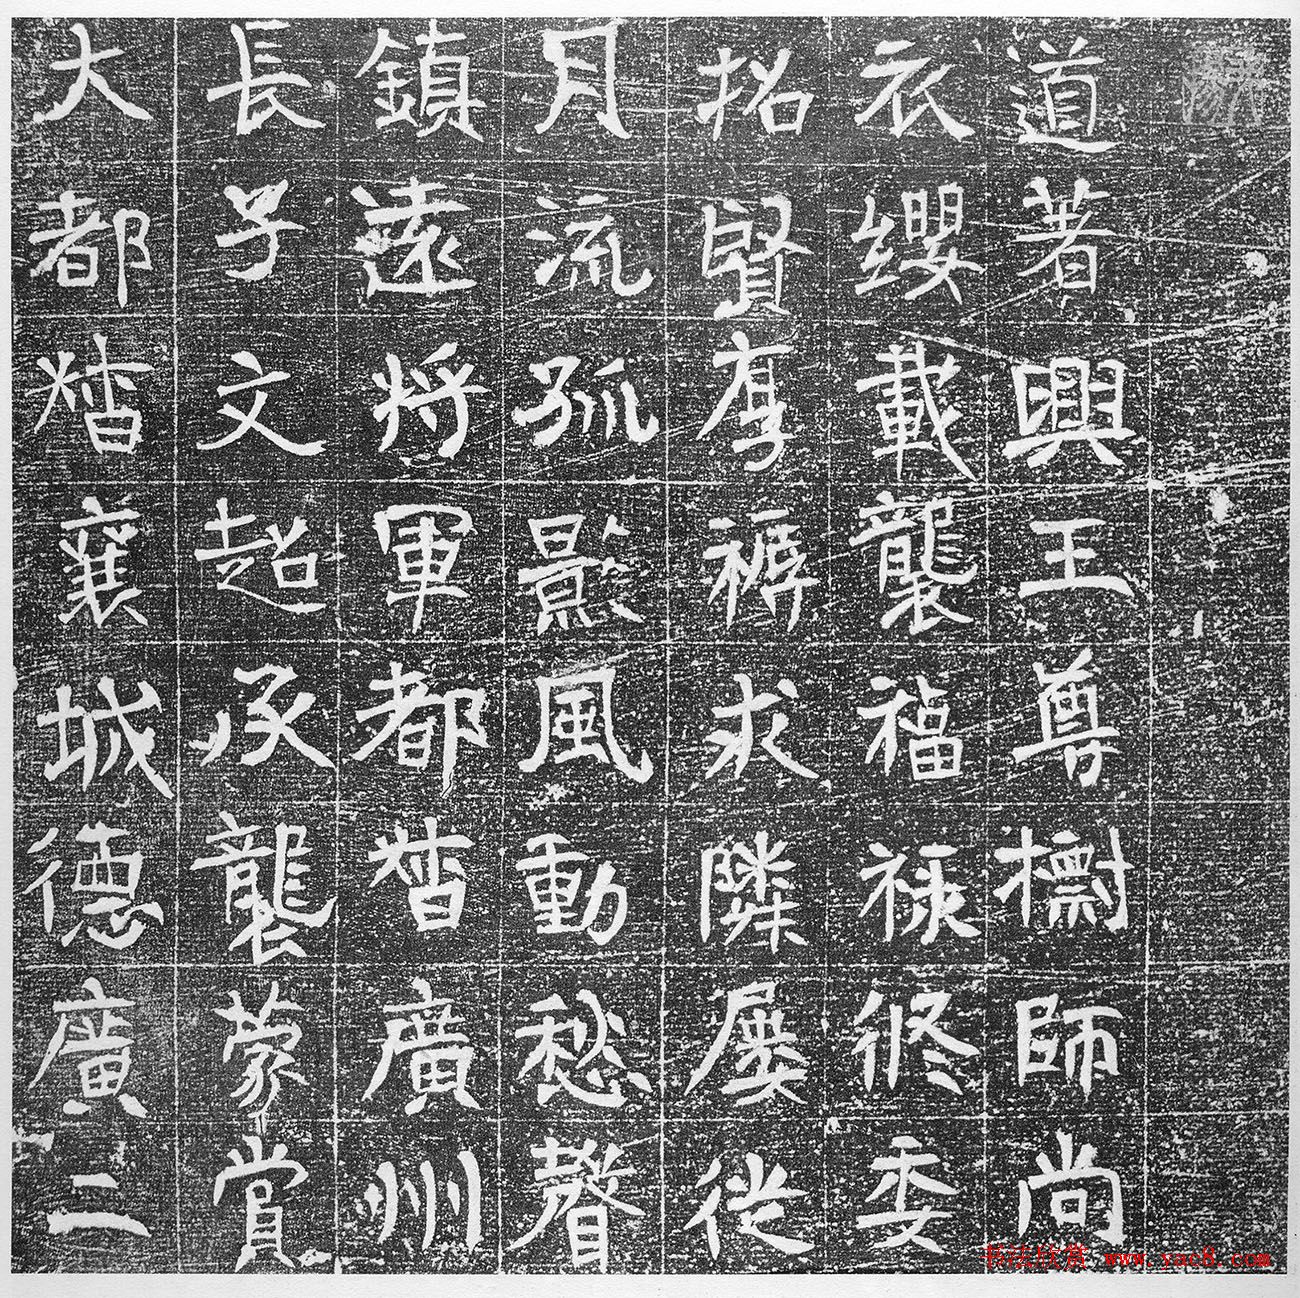 道著興王尊師尚
衣纓載襲福祿修委
招賢褥求隣屢從
月流孤影風動愁聲
鎮遠將軍都督廣州
長子文超承襲蒙賞
大都督襄城德廣二
书法欣赏 www.yac8.com